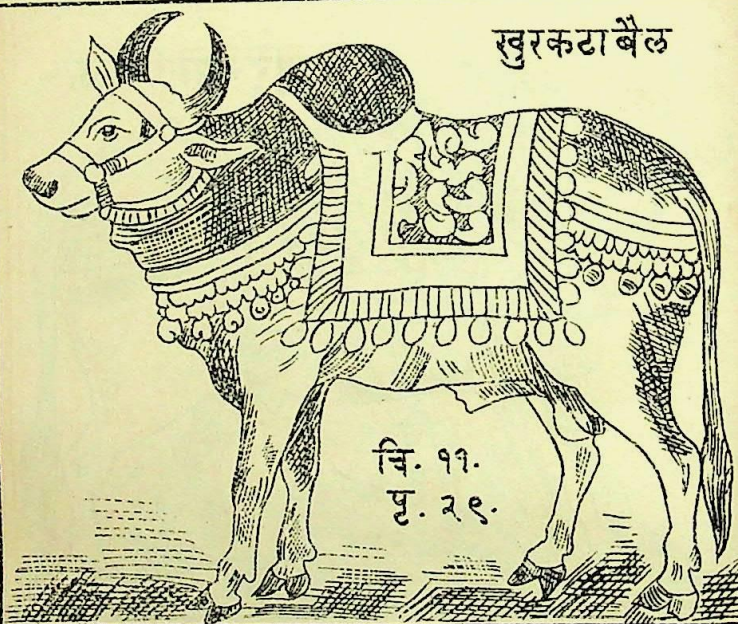 खुरकटा बैल
चि. ११.
पृ. २९.